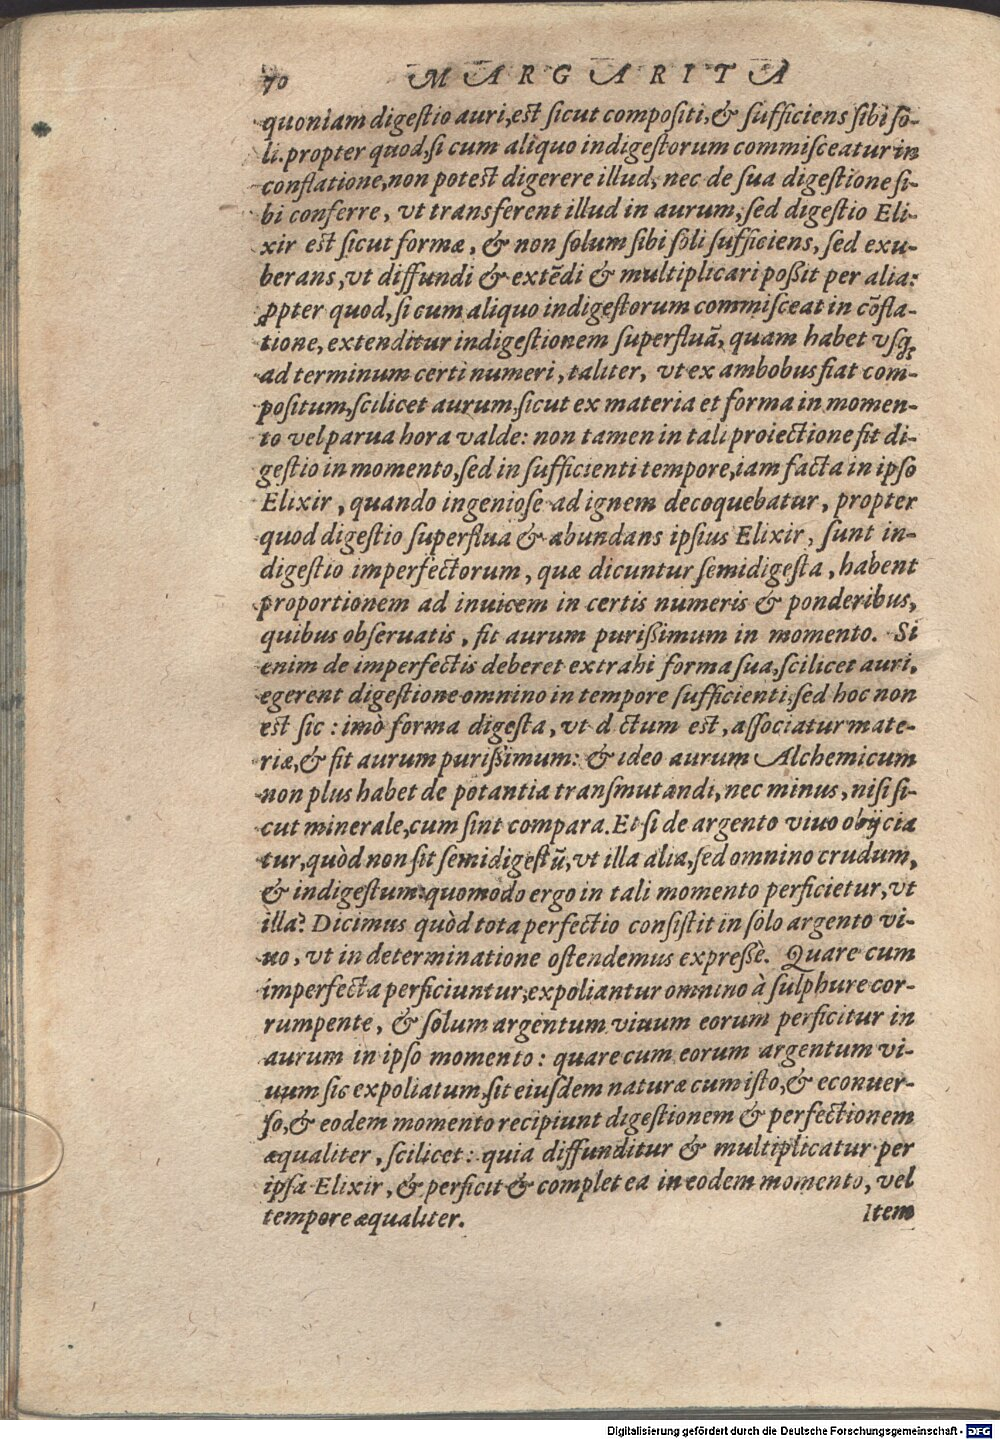 70 MARGARITA
quoniam digestio auri, est sicut compositi, & sufficiens sibi so-
li. propter quod, si cum aliquo indigestorum commisceatur in
conflatione, non potest digerere illud, nec de sua digestione si-
bi conferre, vt transferent illud in aurum, sed digestio Eli-
xir est sicut formæ, & non solum sibi soli sufficiens, sed exu-
berans, vt diffundi & extēdi & multiplicari poßit per alia:
ꝓpter quod, si cum aliquo indigestorum commisceat in cōfla-
tione, extenditur indigestionem superfluā, quam habet vsq;
ad terminum certi numeri, taliter, vt ex ambobus fiat com-
positum, scilicet aurum, sicut ex materia et forma in momen-
to vel parua hora valde: non tamen in tali proiectione fit di-
gestio in momento, sed in sufficienti tempore, iam facta in ipso
Elixir, quando ingeniose ad ignem decoquebatur, propter
quod digestio superflua & abundans ipsius Elixir, sunt in-
digestio imperfectorum, quæ dicuntur semidigesta, habent
proportionem ad inuicem in certis numeris & ponderibus,
quibus obseruatis, fit aurum purißimum in momento. Si
enim de imperfectis deberet extrahi forma sua, scilicet auri,
egerent digestione omnino in tempore sufficienti, sed hoc non
est sic: imò forma digesta, vt d ctum est, associatur mate-
riæ, & fit aurum purißimum: & ideo aurum Alchemicum
non plus habet de potantia transmutandi, nec minus, nisi si-
cut minerale, cum sint compara. Et si de argento viuo obijcia
tur, quòd non sit semidigestū, vt illa alia, sed omnino crudum,
& indigestum: quomodo ergo in tali momento perficietur, vt
illa? Dicimus quòd tota perfectio consistit in solo argento vi-
uo, vt in determinatione ostendemus expreßè. Quare cum
imperfecta perficiuntur, expoliantur omnino à sulphure cor-
rumpente, & solum argentum viuum eorum perficitur in
aurum in ipso momento: quare cum eorum argentum vi-
uum sic expoliatum, sit eiusdem naturæ cum isto, & econuer-
so, & eodem momento recipiunt digestionem & perfectionem
æqualiter, scilicet: quia diffunditur & multiplicatur per
ipsa Elixir, & perficit & complet ea in eodem momento, vel
tempore æqualiter. Item
Digitalisierung gefördert durch die Deutsche Forschungsgemeinschaft - DFG